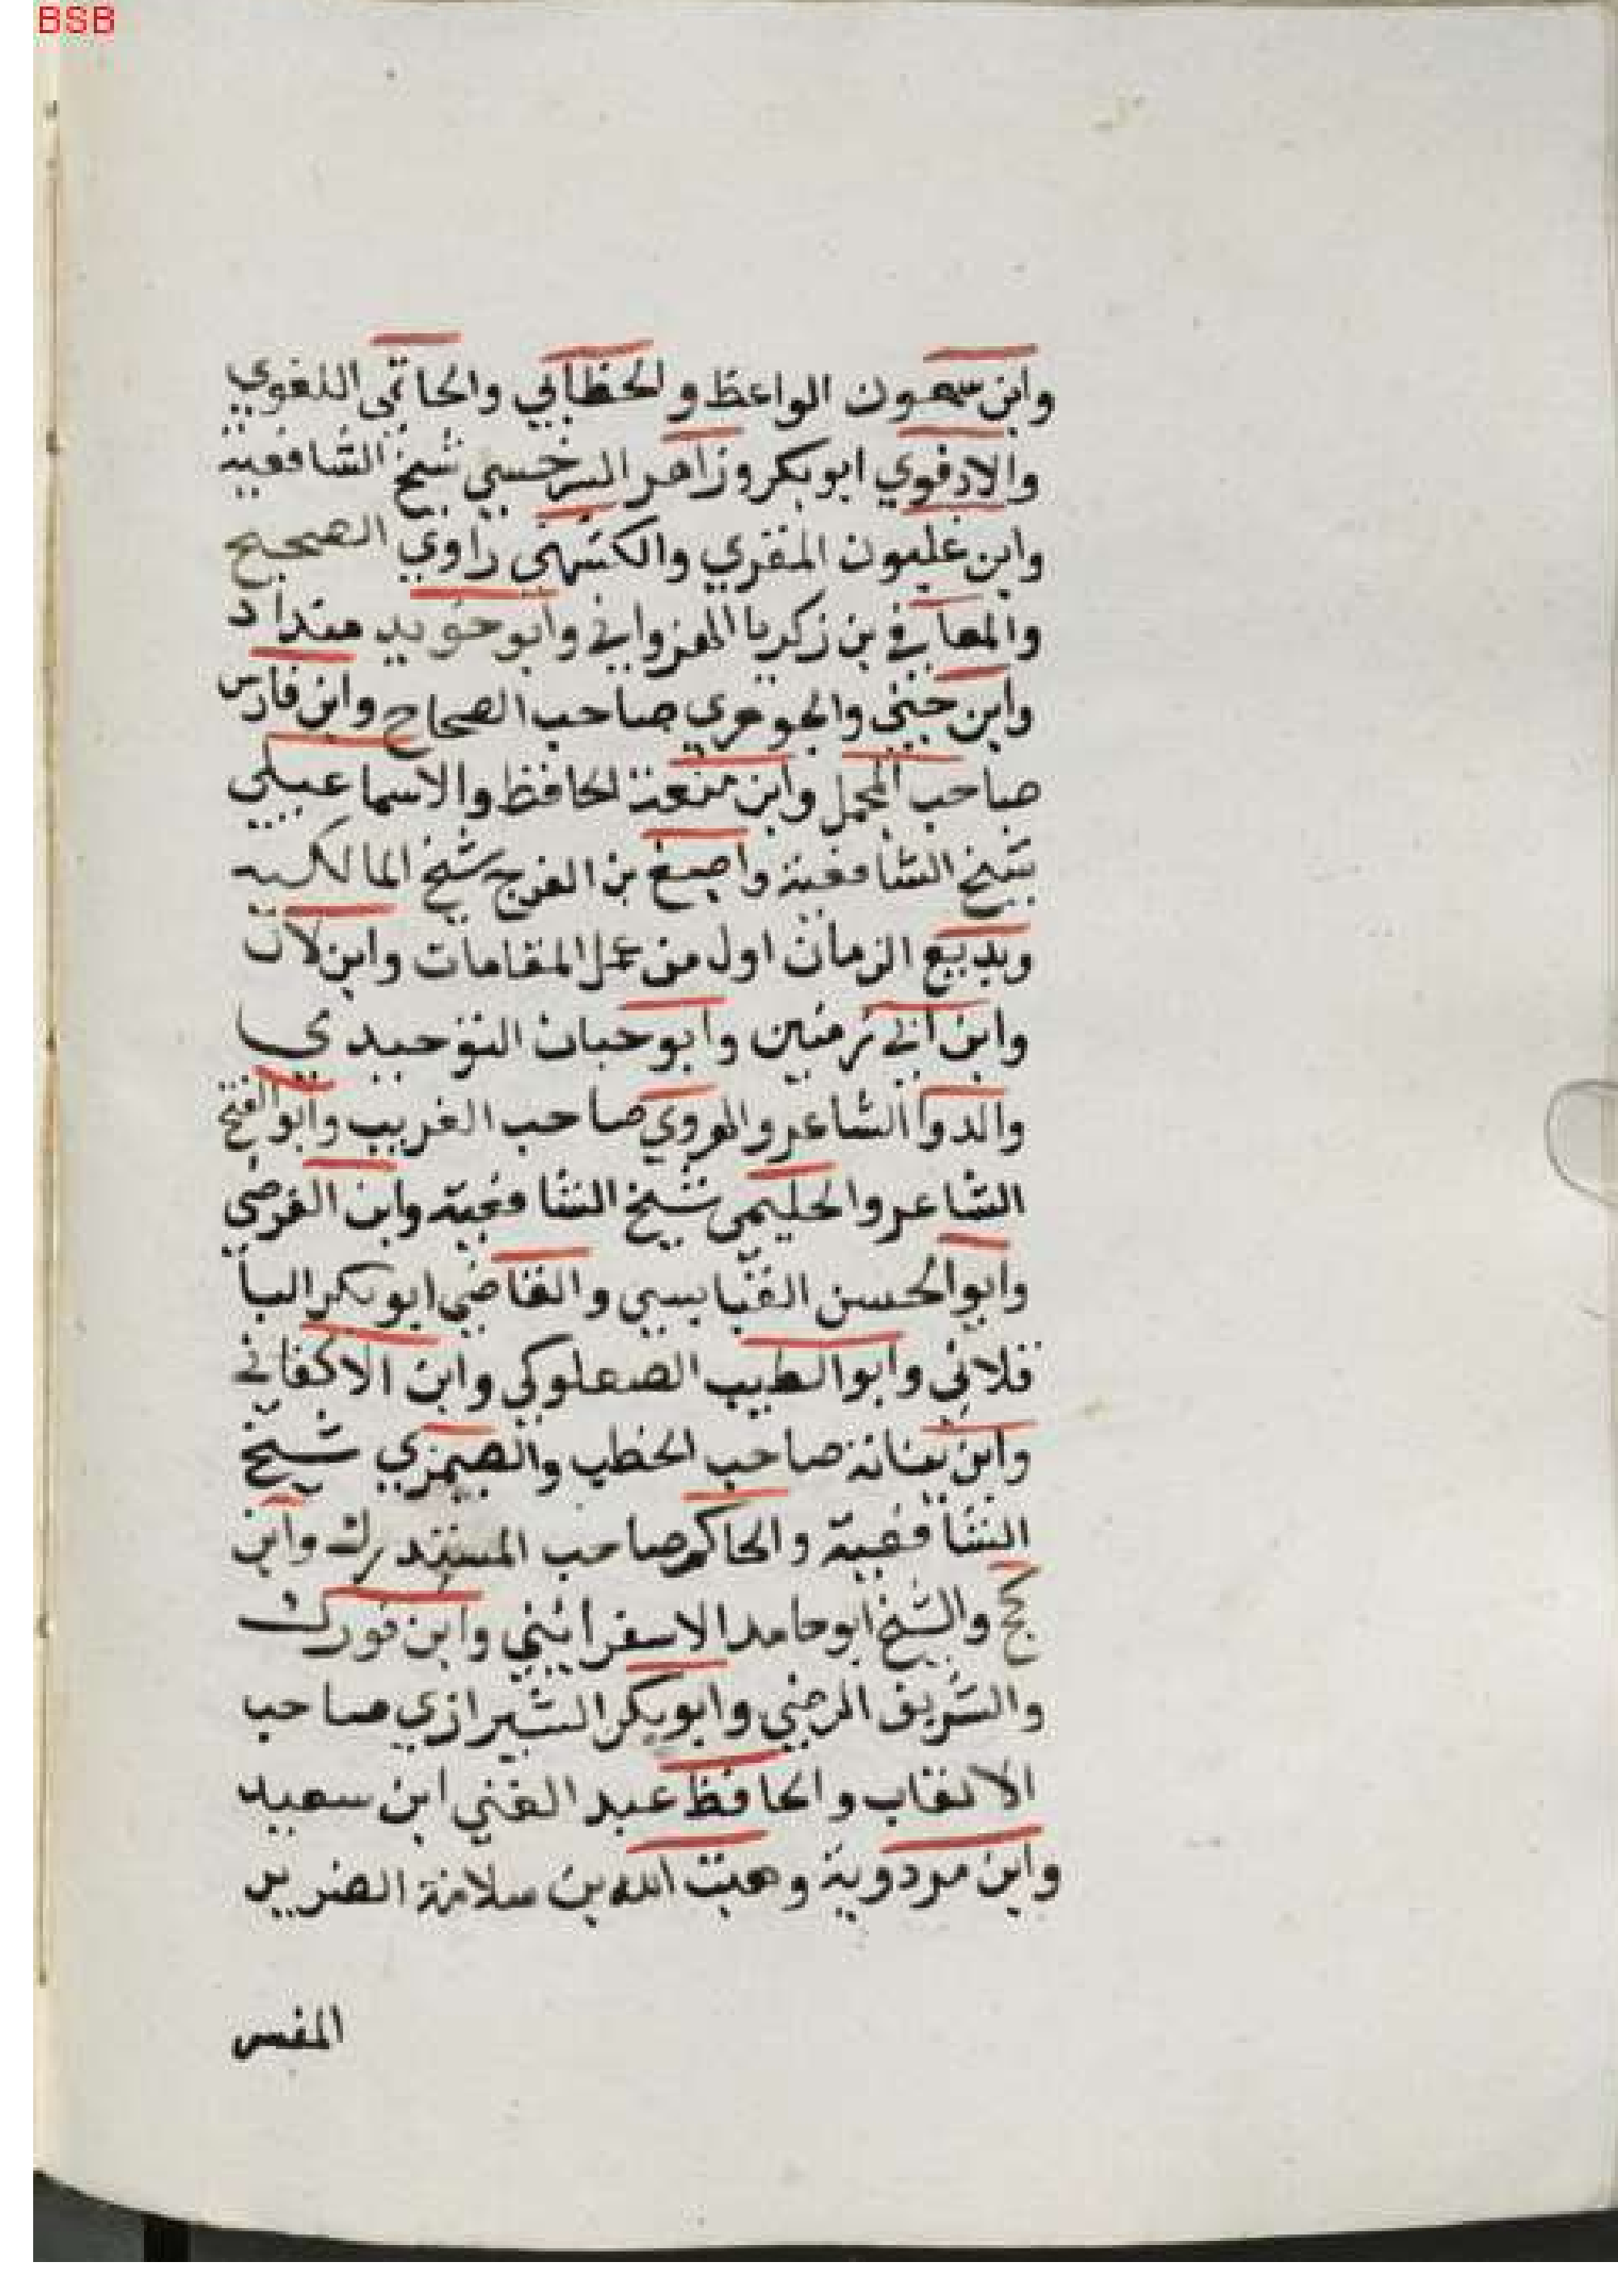 BSB
وابن سمعون الواعظ والخطابي والحاتمي اللغوي
والادفوي ابوبكر وزاهر السرخسي شيخ الشافعية
وابن غلبون المقري والكشمهى راوي الصحيح
والمعافي بن زكريا النهرواني وابو خويد منداد
وابن جني والجوهري صاحب الصحاح وابن فارس
صاحب المجمل وابن منعدة الحافظ والاسماعيلي
شيخ الشافعية واصبغ بن الفرج شيخ المالكيه
وبديع الزمان اول من عمل المقامات وابن لال
وابن ابي زمنين وابو حيان التوحيدي
والدوا الشاعر والهروي صاحب الغريب وابو الفتح
الشاعر والحليمي شيخ الشافعية وابن الفرضي
وابوالحسن القابسي والقاضي ابوبكر البا
قلاني وابوالطيب الصعلوكي وابن الاكفاني
وابن نباتة صاحب الخطب والصيمري شيخ
الشافعية والحاكم صاحب المستدرك وابن
كج والشيخ ابو حامد الاسفرائيني وابن فورك
والشريف الرضي وابوبكر الشيرازي صاحب
الالقاب والحافظ عبد الغني ابن سعيد
وابن مردوية وهبت الله بن سلامة الضرير
المفس